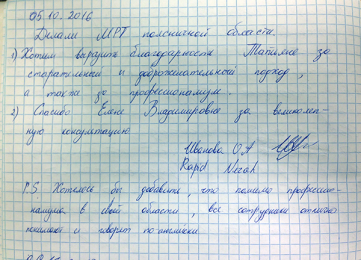 05.10.2016
Делали МРТ поясничной области.
1) Хотим выразить благодарность Татьяне за
старательный и доброжелательный подход,
а также за профессионализм.
2) Спасибо Елене Владимировне за великолеп-
ную консультацию
Иванова О.А.
Rapid
P.S Хотелось бы добавить, что помимо професси-
нализма в своей области, все сотрудники отлично
понимают и говорят по-английски